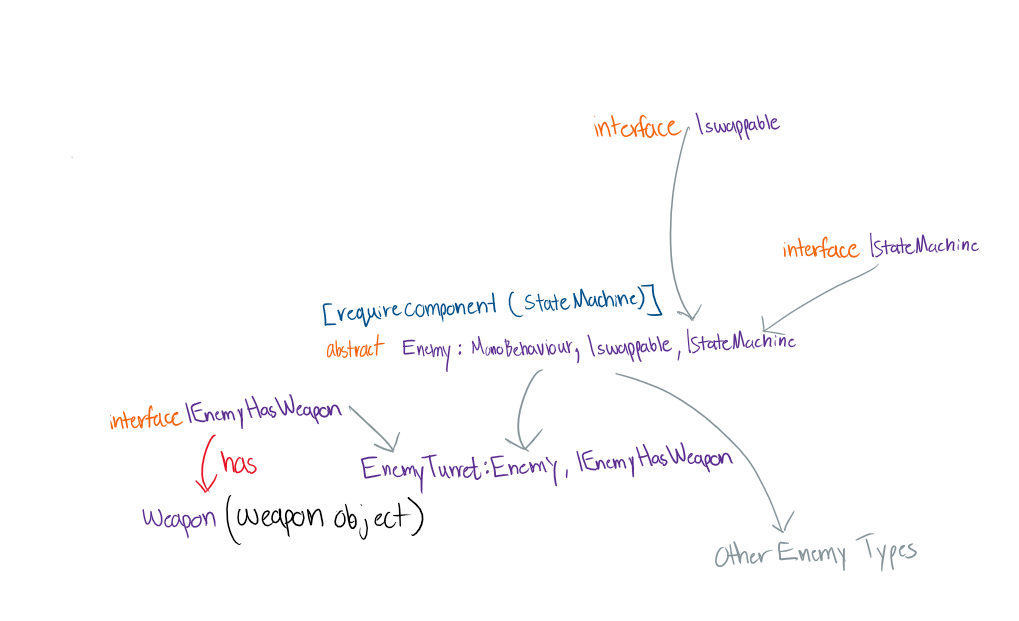 interface Iswappable
interface IStateMachine
[requirecomponent (StateMachine)]
abstract Enemy : MonoBehaviour, Iswappable, IStateMachine
interface IEnemyHasWeapon
has
EnemyTurret:Enemy, IEnemyHasWeapon
Weapon (weapon object)
Other Enemy Types